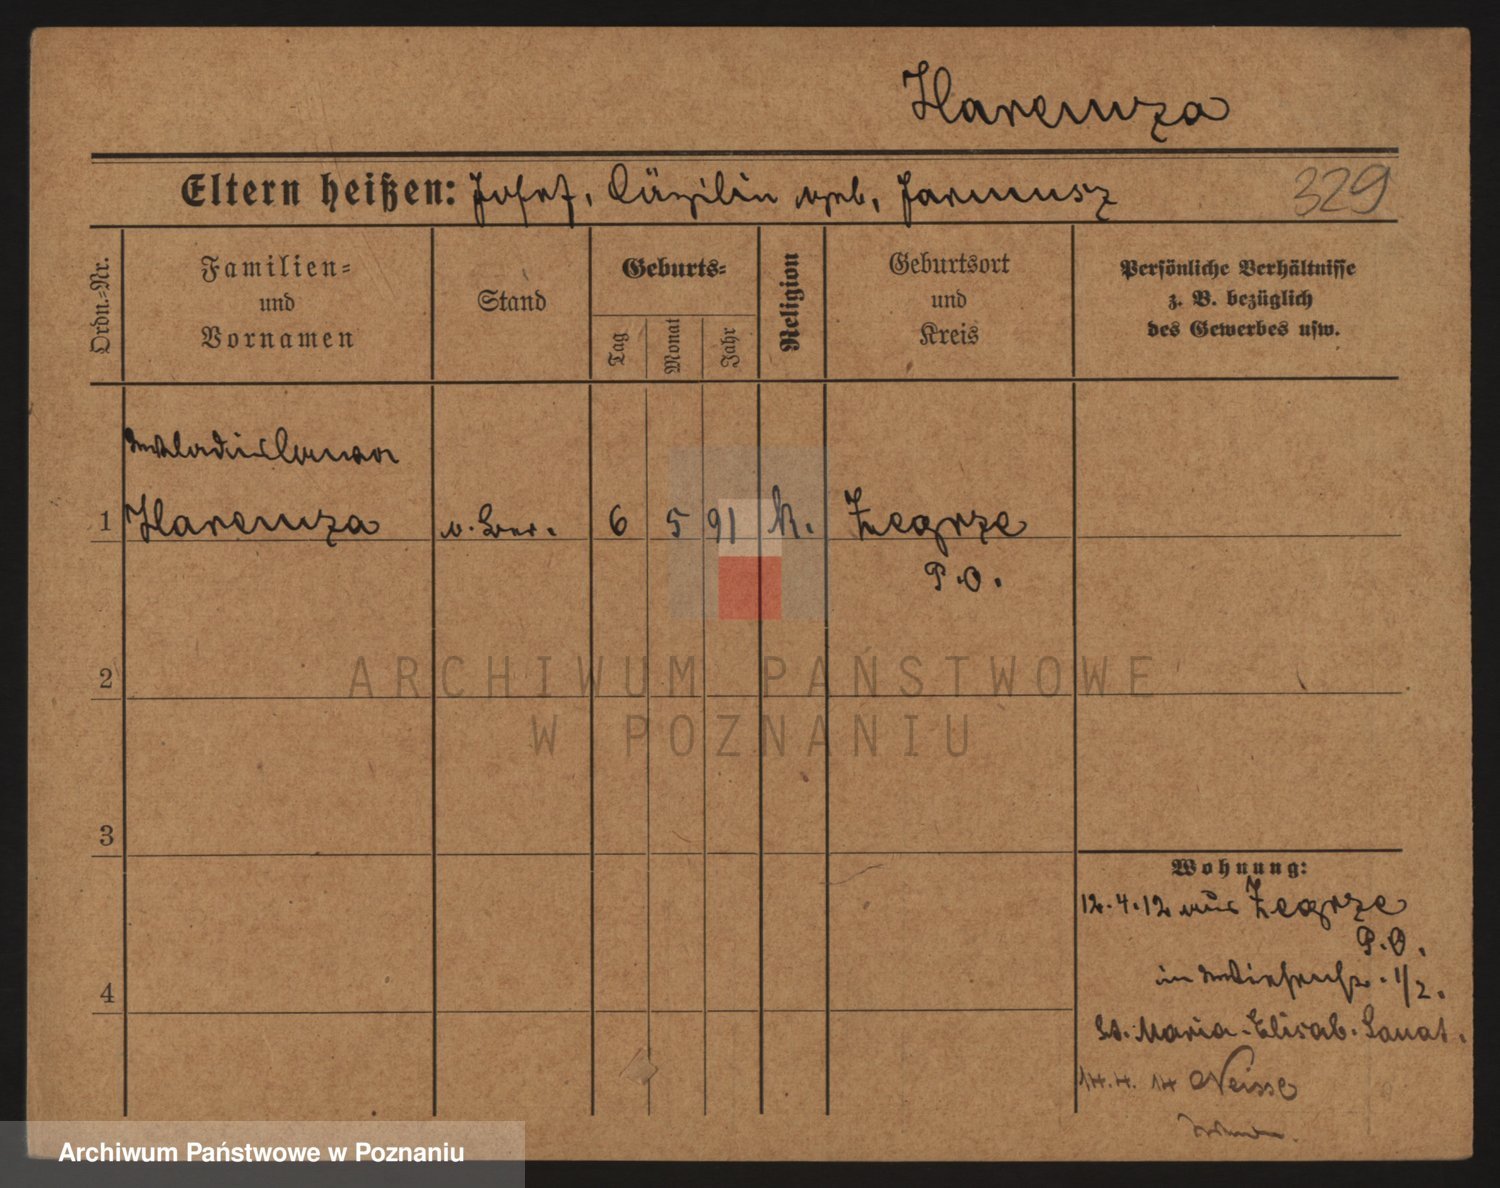 Haremza
Eltern heißen: Josef, Cäzilia geb. Jarmusz
329
Ordn.=Nr.
Familien=
und
Vornamen
Stand
Geburts=
Tag
Monat
Jahr
Religion
Geburtsort
und
Kreis
Persönliche Verhältnisse
z. B. bezüglich
des Gewerbes usw.
Wladislawa
1 Haremza 6 5 91 k. Zegrze
P.O.
2
3
4
Wohnung:
12.4.12 aus Zegrze
P.O.
in 1/2.
St. Maria-Elisab. Sanat.
14.4.14 Neisse
ARCHIWUM PAŃSTWOWE
W POZNANIU
Archiwum Państwowe w Poznaniu